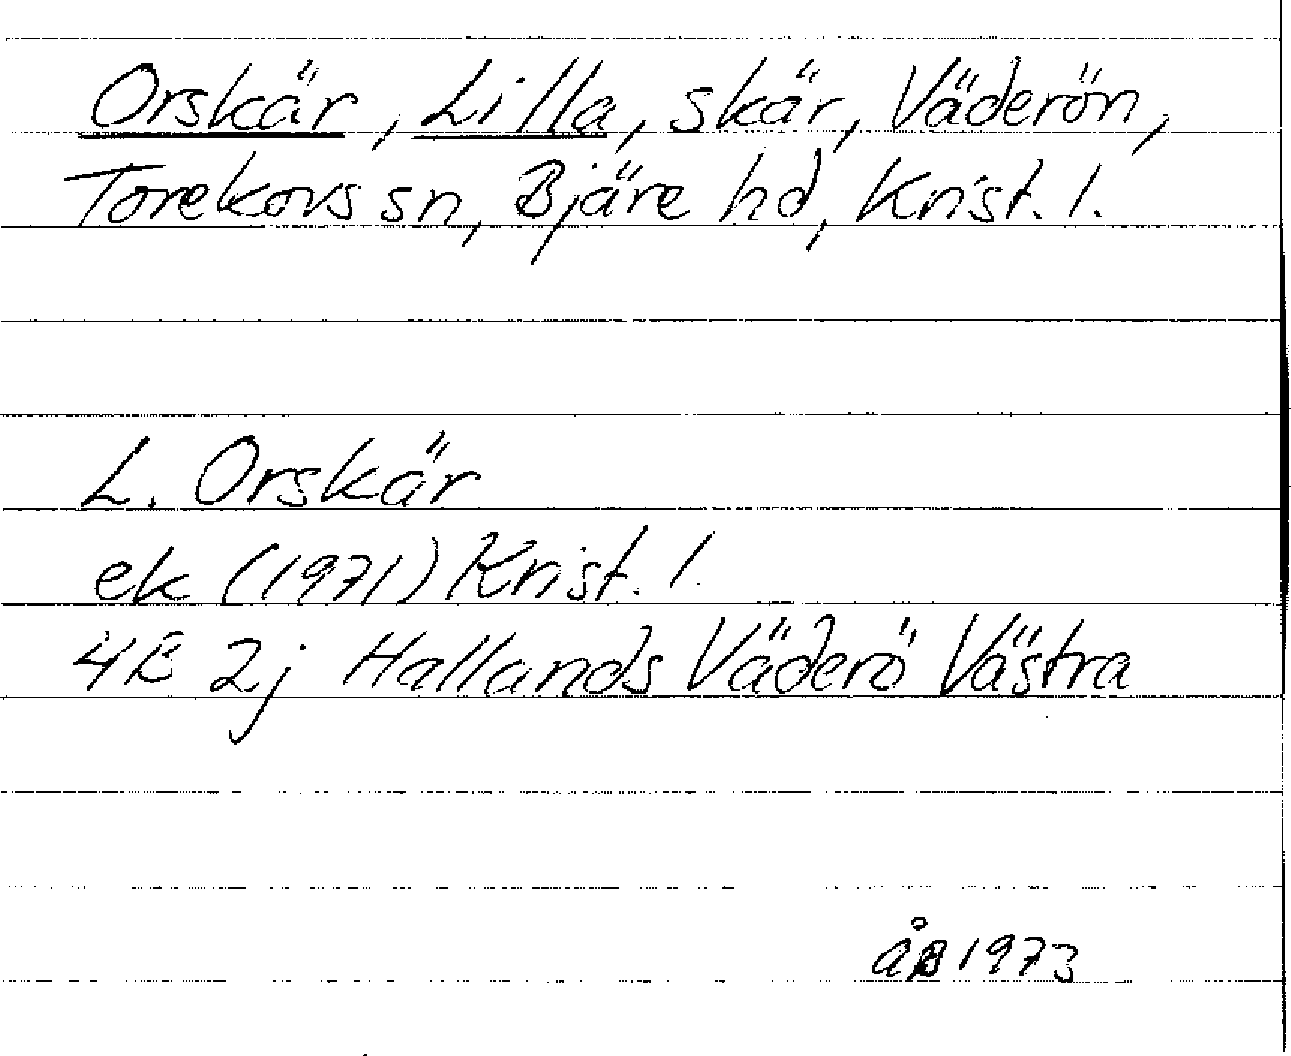 Orskär, Lilla, skär, Väderön,
Torekovs sn, Bjäre hd, Krist. l.
L. Orskär
ek (1971) Krist. l.
4B 2j Hallands Väderö Västra
ÅB 1973